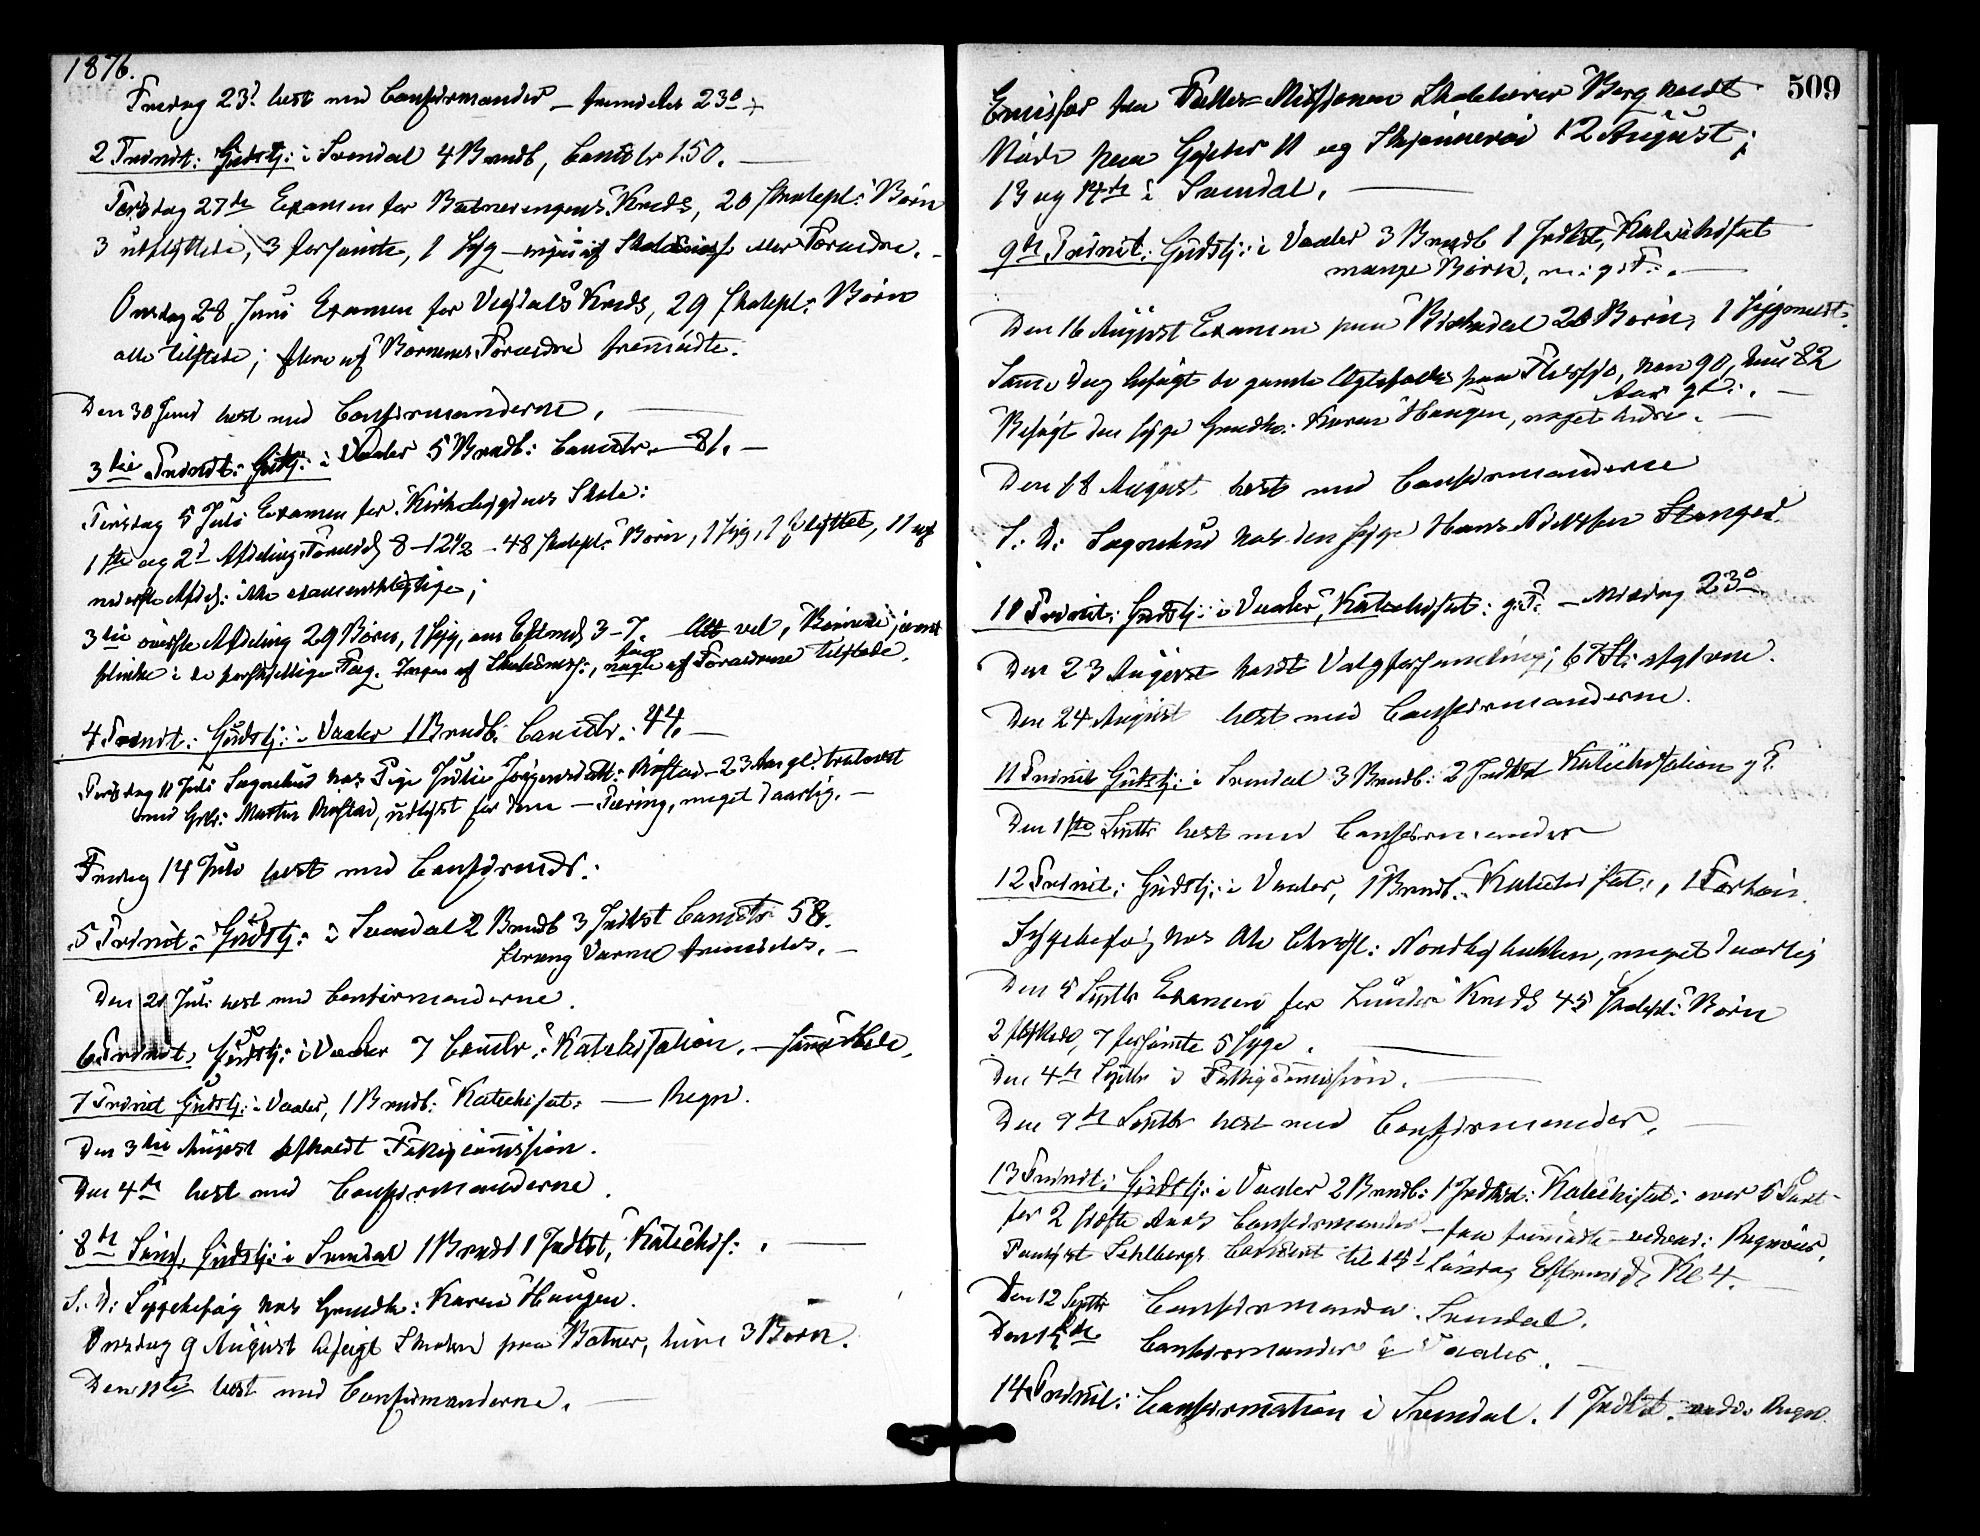 1876.
Fredag 23d. læst med Confirmander – fremdeles 23° +
2 Trinit: Gudstj: i Svendal 4 Brudf, Comtr 150. —
Tirsdag 27de Examen for Batnerengens Kreds, 20 skolepl: Børn
3 udflyttede, 3 forsømte, 1 syg – ingen af Forældre.
Onsdag 28 Juni Examen for Kreds, 29 skolepl: Børn
alle tilstede; flere af Børnenes Forældre fremmødte.
Den 30 Juni læst med Confirmanderne. —
3die Trinit: Gudtj: i Vaaler 5 Brudf: Comtr. 81. —
Tirsdag 5 Juli Examen for Kirkebygdens Skole:
1ste og 2d Afdeling Formid 8–12½ – 48 skolepl: Børn, 1 syg, 1 flyttet, 11 af
nederste Afd: ikke examenspligtige;
3die øverste Afdeling 29 Børn, 1 syg, om Eftmd 3–7. Alt vel, Børnene jævnt
flinke i de forskjellige Fag. Ingen af Skolecomsj:, faa nogle af Forældrene tilstede.
4 Trinit: Gudstj: i Vaaler 1 Brudf: Comtr: 44. —
Tirsdag 11 Juli Sognebud hos Pige Julie Jørgensdatt: 23 Aar gl: trolovet
med Grbr: Martin, udlyst for dem – Tæring, meget daarlig. —
Fredag 14 Juli læst med Confirmds:
5 Trinit: Gudstj: i Svendal 2 Brudf 3 Indtst Comtr 58.
stræng Varme fremdeles. —
Den 21 Juli læst med Confirmanderne.
6 Trinit: Gudstj: i Vaaler 7 Comtr: Katekisation. —
7 Trinit Gudstj: i Vaaler, 1 Brudf: Katekisat: — Regn.
Den 3die August afholdt Fattigcommission.
Den 4de læst med Confirmanderne.
8de Søns. Gudstj: i Svendal 1 Brudf 1 Indtst, Katekis: . —
S. D: Sygebesøg hos Grmdk: Karen Haugen.
Onsdag 9 August besøgt Skolen paa Batner, kun 3 Børn.
Den 11te læst med Confirmanderne. —
509
Emissær fra Fælles-Missionen Skolelærer Berg holdt
Møde paa 11 og 12 August;
13 og 14de i Svendal. —
9de Trinit: Gudstj: i Vaaler 3 Brudf 1 Indtst, Katekisat
mange Børn, m: g: F: . —
Den 16 August Examen paa 20 Børn, 1 sygmeldt.
Samme Dag besøgt de gamle Ægtefolk paa, han 90, hun 82
Aar gl: . —
Besøgt den syge Grmdk: Karen Haugen, noget bedre. —
Den 18 August læst med Confirmanderne
S. D: Sognebud hos den syge Hans Nielssen Stanger.
10 Trinit: Gudstj: i Vaaler, Katekisat: g: F: – Middag 23°
Den 23 August holdt Valgforsamling; 67 St: afgivne.
Den 24 August læst med Confirmanderne.
11 Trinit Gudstj: i Svendal 3 Brudf: 2 Indtst Katekisation g F.
Den 1ste Septbr læst med Confirmander
12 Trinit: Gudstj: i Vaaler, 1 Brudf: Katekisat:, 1
Sygebesøg hos Ole Christ: Nordbybakken, meget daarlig
Den 5 Septbr Examen for Lunder Kreds 45 skolepl: Børn
2 flyttede, 7 forsømte 5 syge. —
Den 4de Septbr i Fattigcommission. —
Den 9de Septbr læst med Confirmander. —
13 Trinit: Gudstj: i Vaaler 2 Brudf: 1 Indtst: Katekisat: over 5 Part
for 2 sidste Aars Confirmander – faa fremmødte – Regnveir.
Concert til Løsdag Eftermid: Kl 4. —
Den 12 Septbr Confirmander Svendal.
Den 15de Confirmander i Vaaler. —
14 Trinit: Confirmation i Svendal. 1 Indtst. Regn.